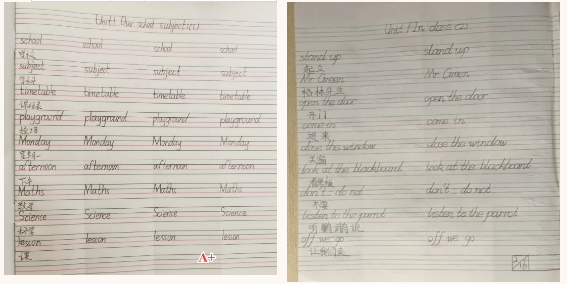 Unit1 Our school subjects(1)
school school school school
学校
subject subject subject subject
timetable timetable timetable timetable
课程表
playground playground playground playground
操场
Monday Monday Monday Monday
星期一
afternoon afternoon afternoon afternoon
下午
Maths Maths Maths Maths
数学
Science Science Science Science
科学
lesson lesson lesson lesson
课
A+
Unit 1 In class (2)
stand up stand up
起立
Mr Green Mr Green
格林先生
open the door open the door
开门
come in come in
进来
close the window close the window
关窗
look at the blackboard look at the blackboard
看黑板
don't = do not don't = do not
不要
listen to the parrot listen to the parrot
听鹦鹉说
off we go off we go
让我们走